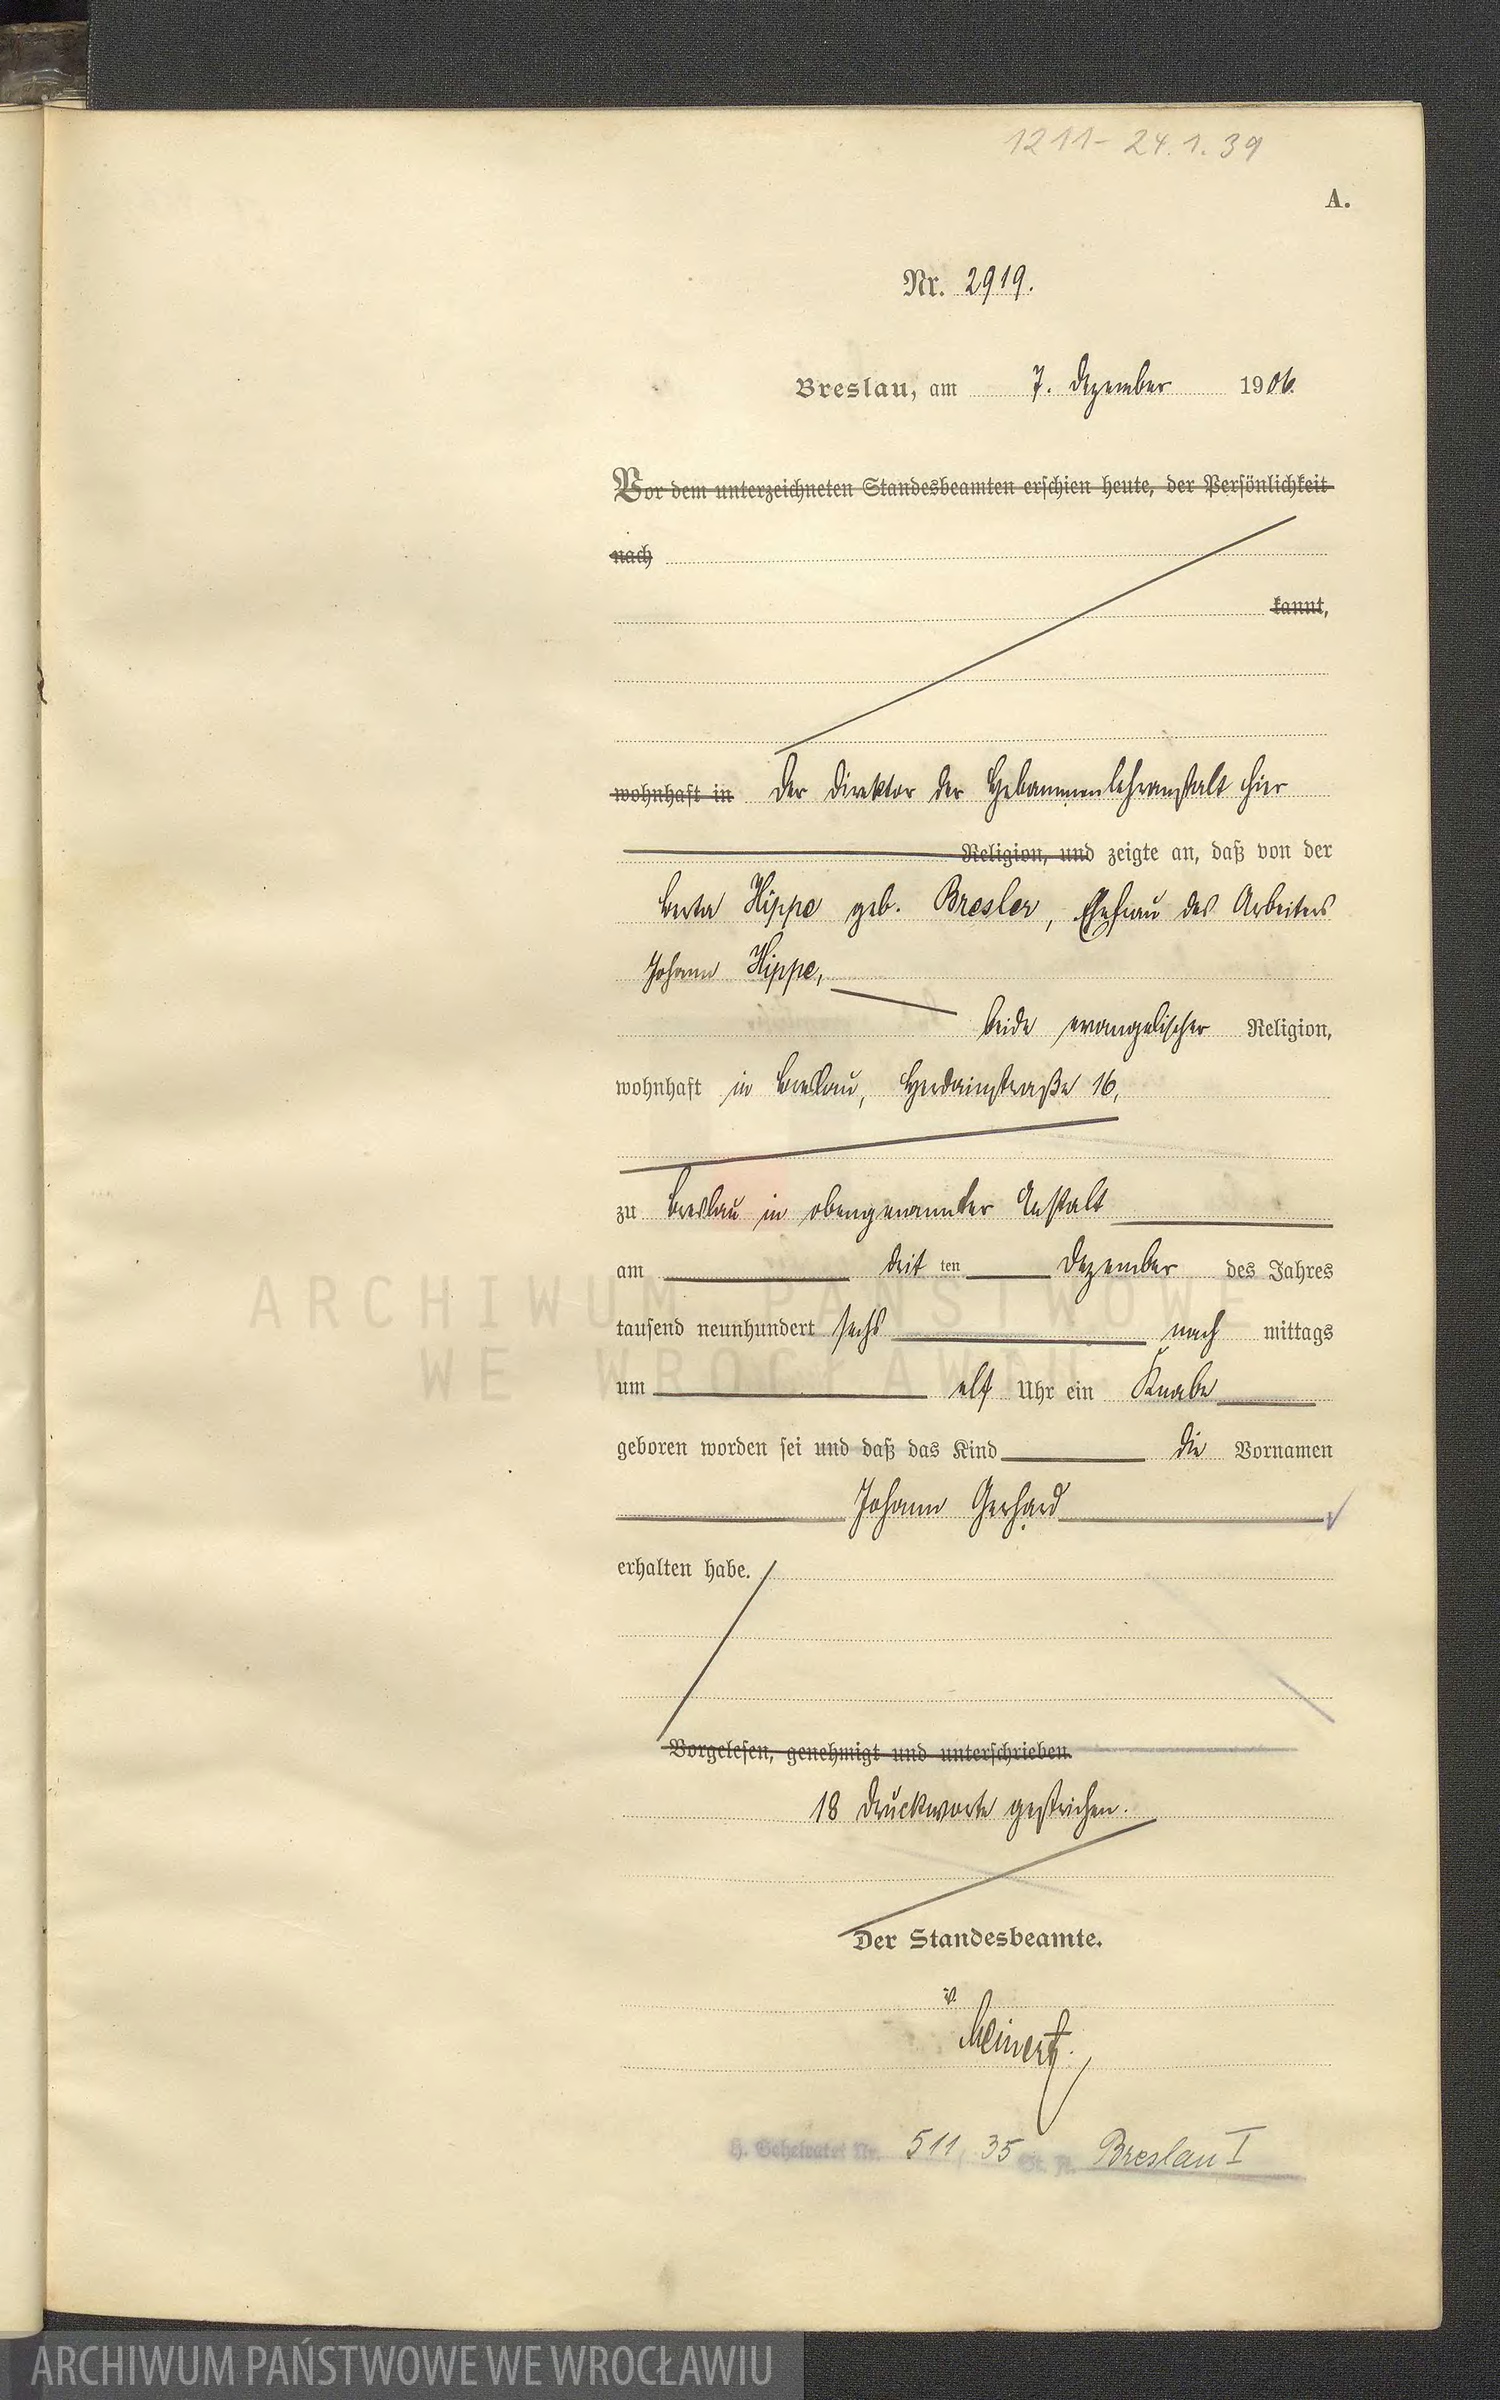 1211- 24.1.39
A.
Nr. 2919.
Breslau, am 7. Dezember 1906.
Vor dem unterzeichneten Standesbeamten erschien heute, der Persönlichkeit
nach
kannt,
wohnhaft in Der Direktor der Hebammenlehranstalt hier
Religion, und zeigte an, daß von der
Berta Hippe geb. Bresler, Ehefrau des Arbeiters
Johann Hippe,
beide evangelischer Religion,
wohnhaft in Breslau, Herdainstraße 16,
zu Breslau in obengenannter Anstalt
am drit ten Dezember des Jahres
tausend neunhundert sechs nach mittags
um elf Uhr ein Knabe
geboren worden sei und daß das Kind die Vornamen
Johann Gerhard
erhalten habe.
Vorgelesen, genehmigt und unterschrieben.
18 Druckworte gestrichen.
Der Standesbeamte.
Meinert.
H. Geheiratet Nr. 511 / 35 St. A. Breslau I
ARCHIWUM PAŃSTWOWE
WE WROCŁAWIU
ARCHIWUM PAŃSTWOWE WE WROCŁAWIU